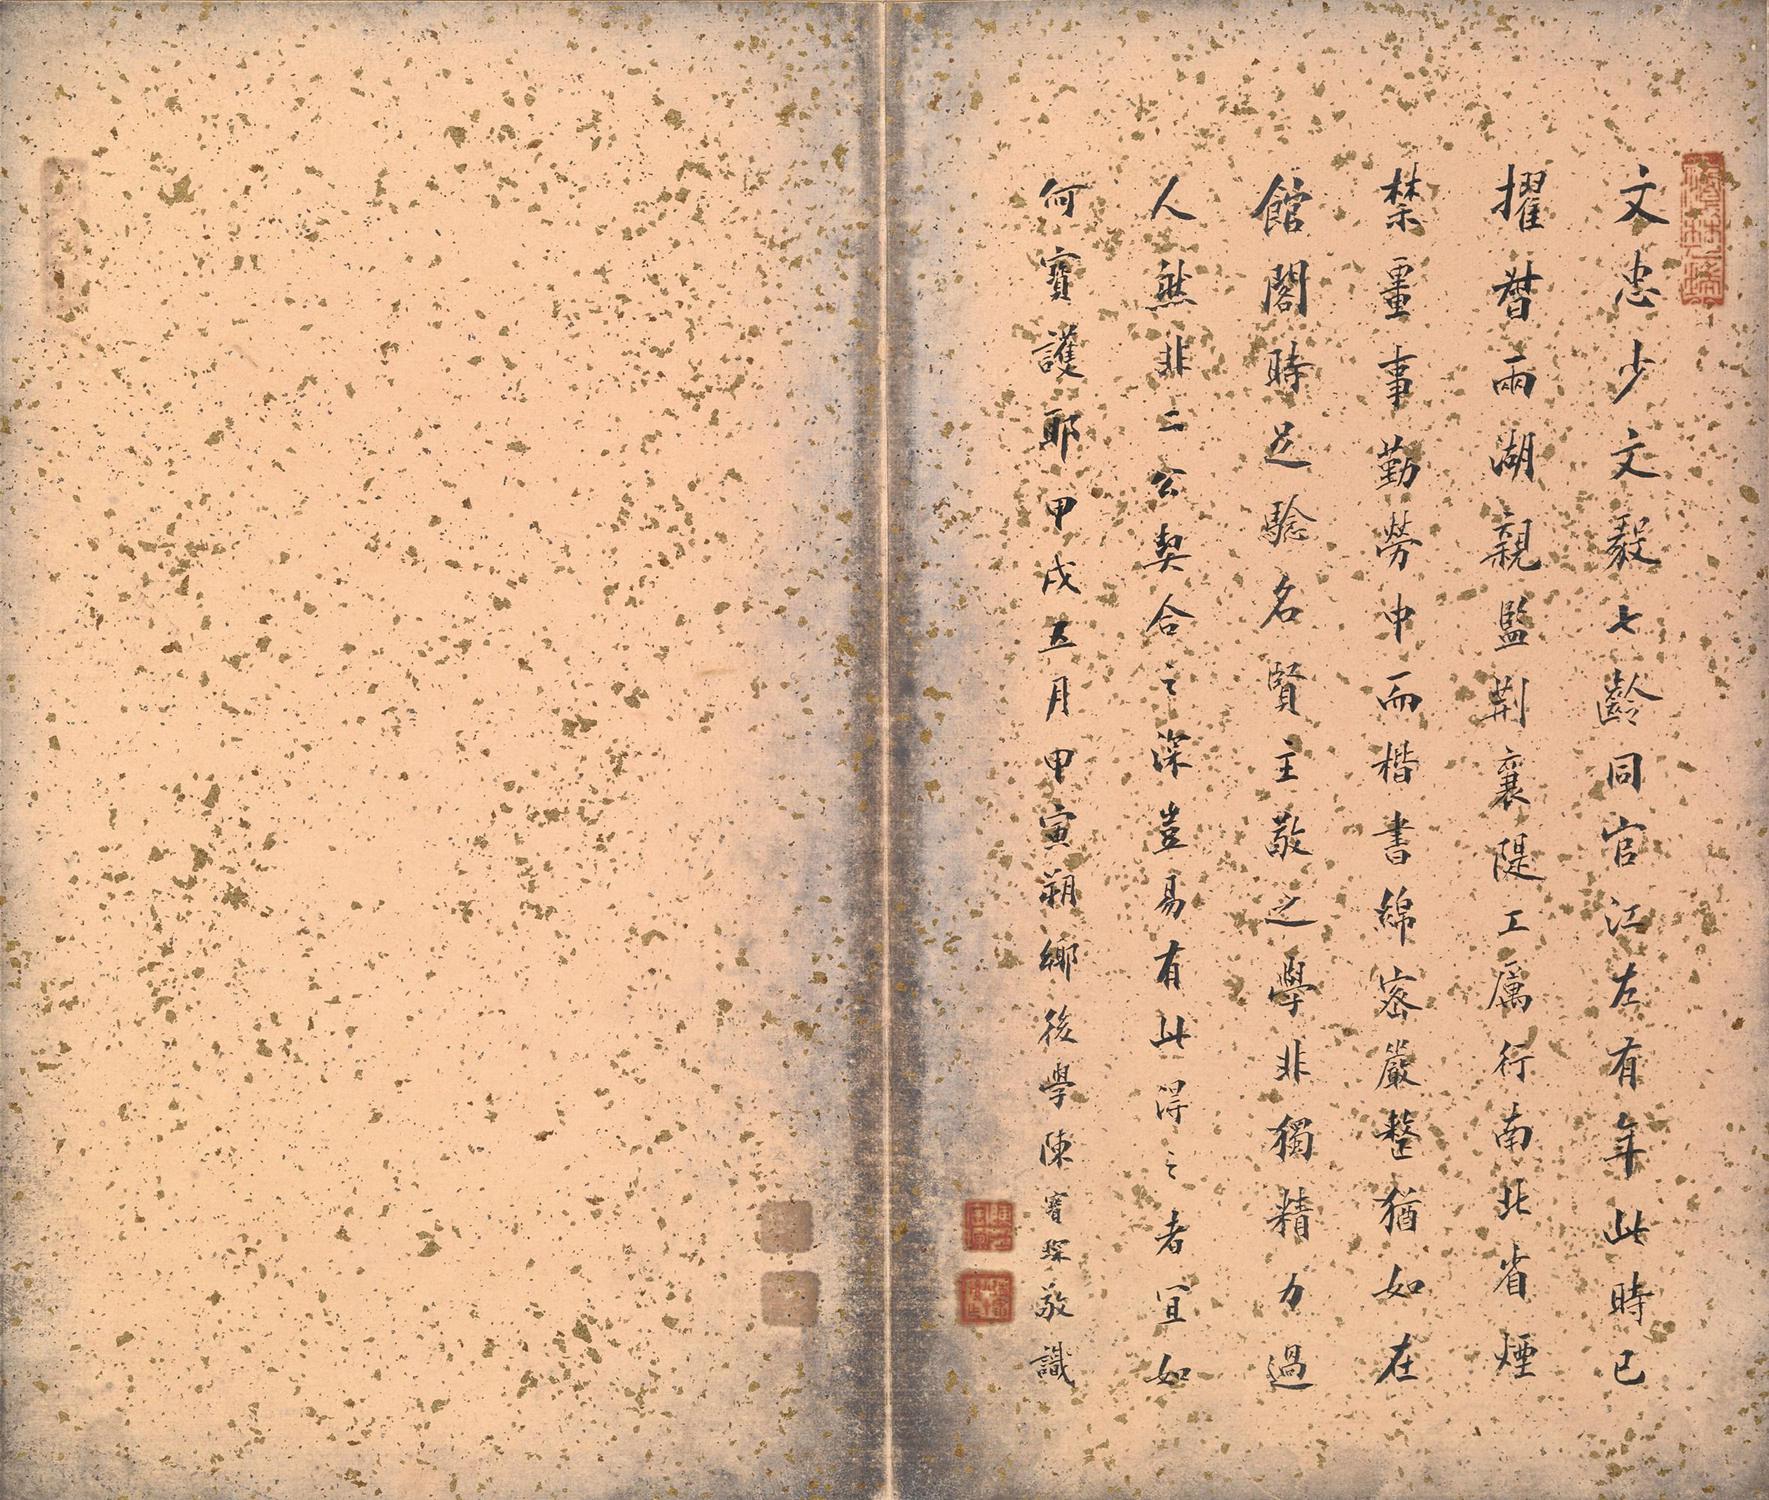 文忠少文毅七齡同官江左有年此時已
擢督兩湖親監荆襄隄工厲行南北省煙
禁畺事勤勞中而楷書綿密嚴整猶如在
館閣時足驗名賢主敬之學非獨精力過
人然非二公契合之深豈易有此得之者宜如
何寶護耶甲戌五月甲寅朔鄉後學陳寶琛敬識